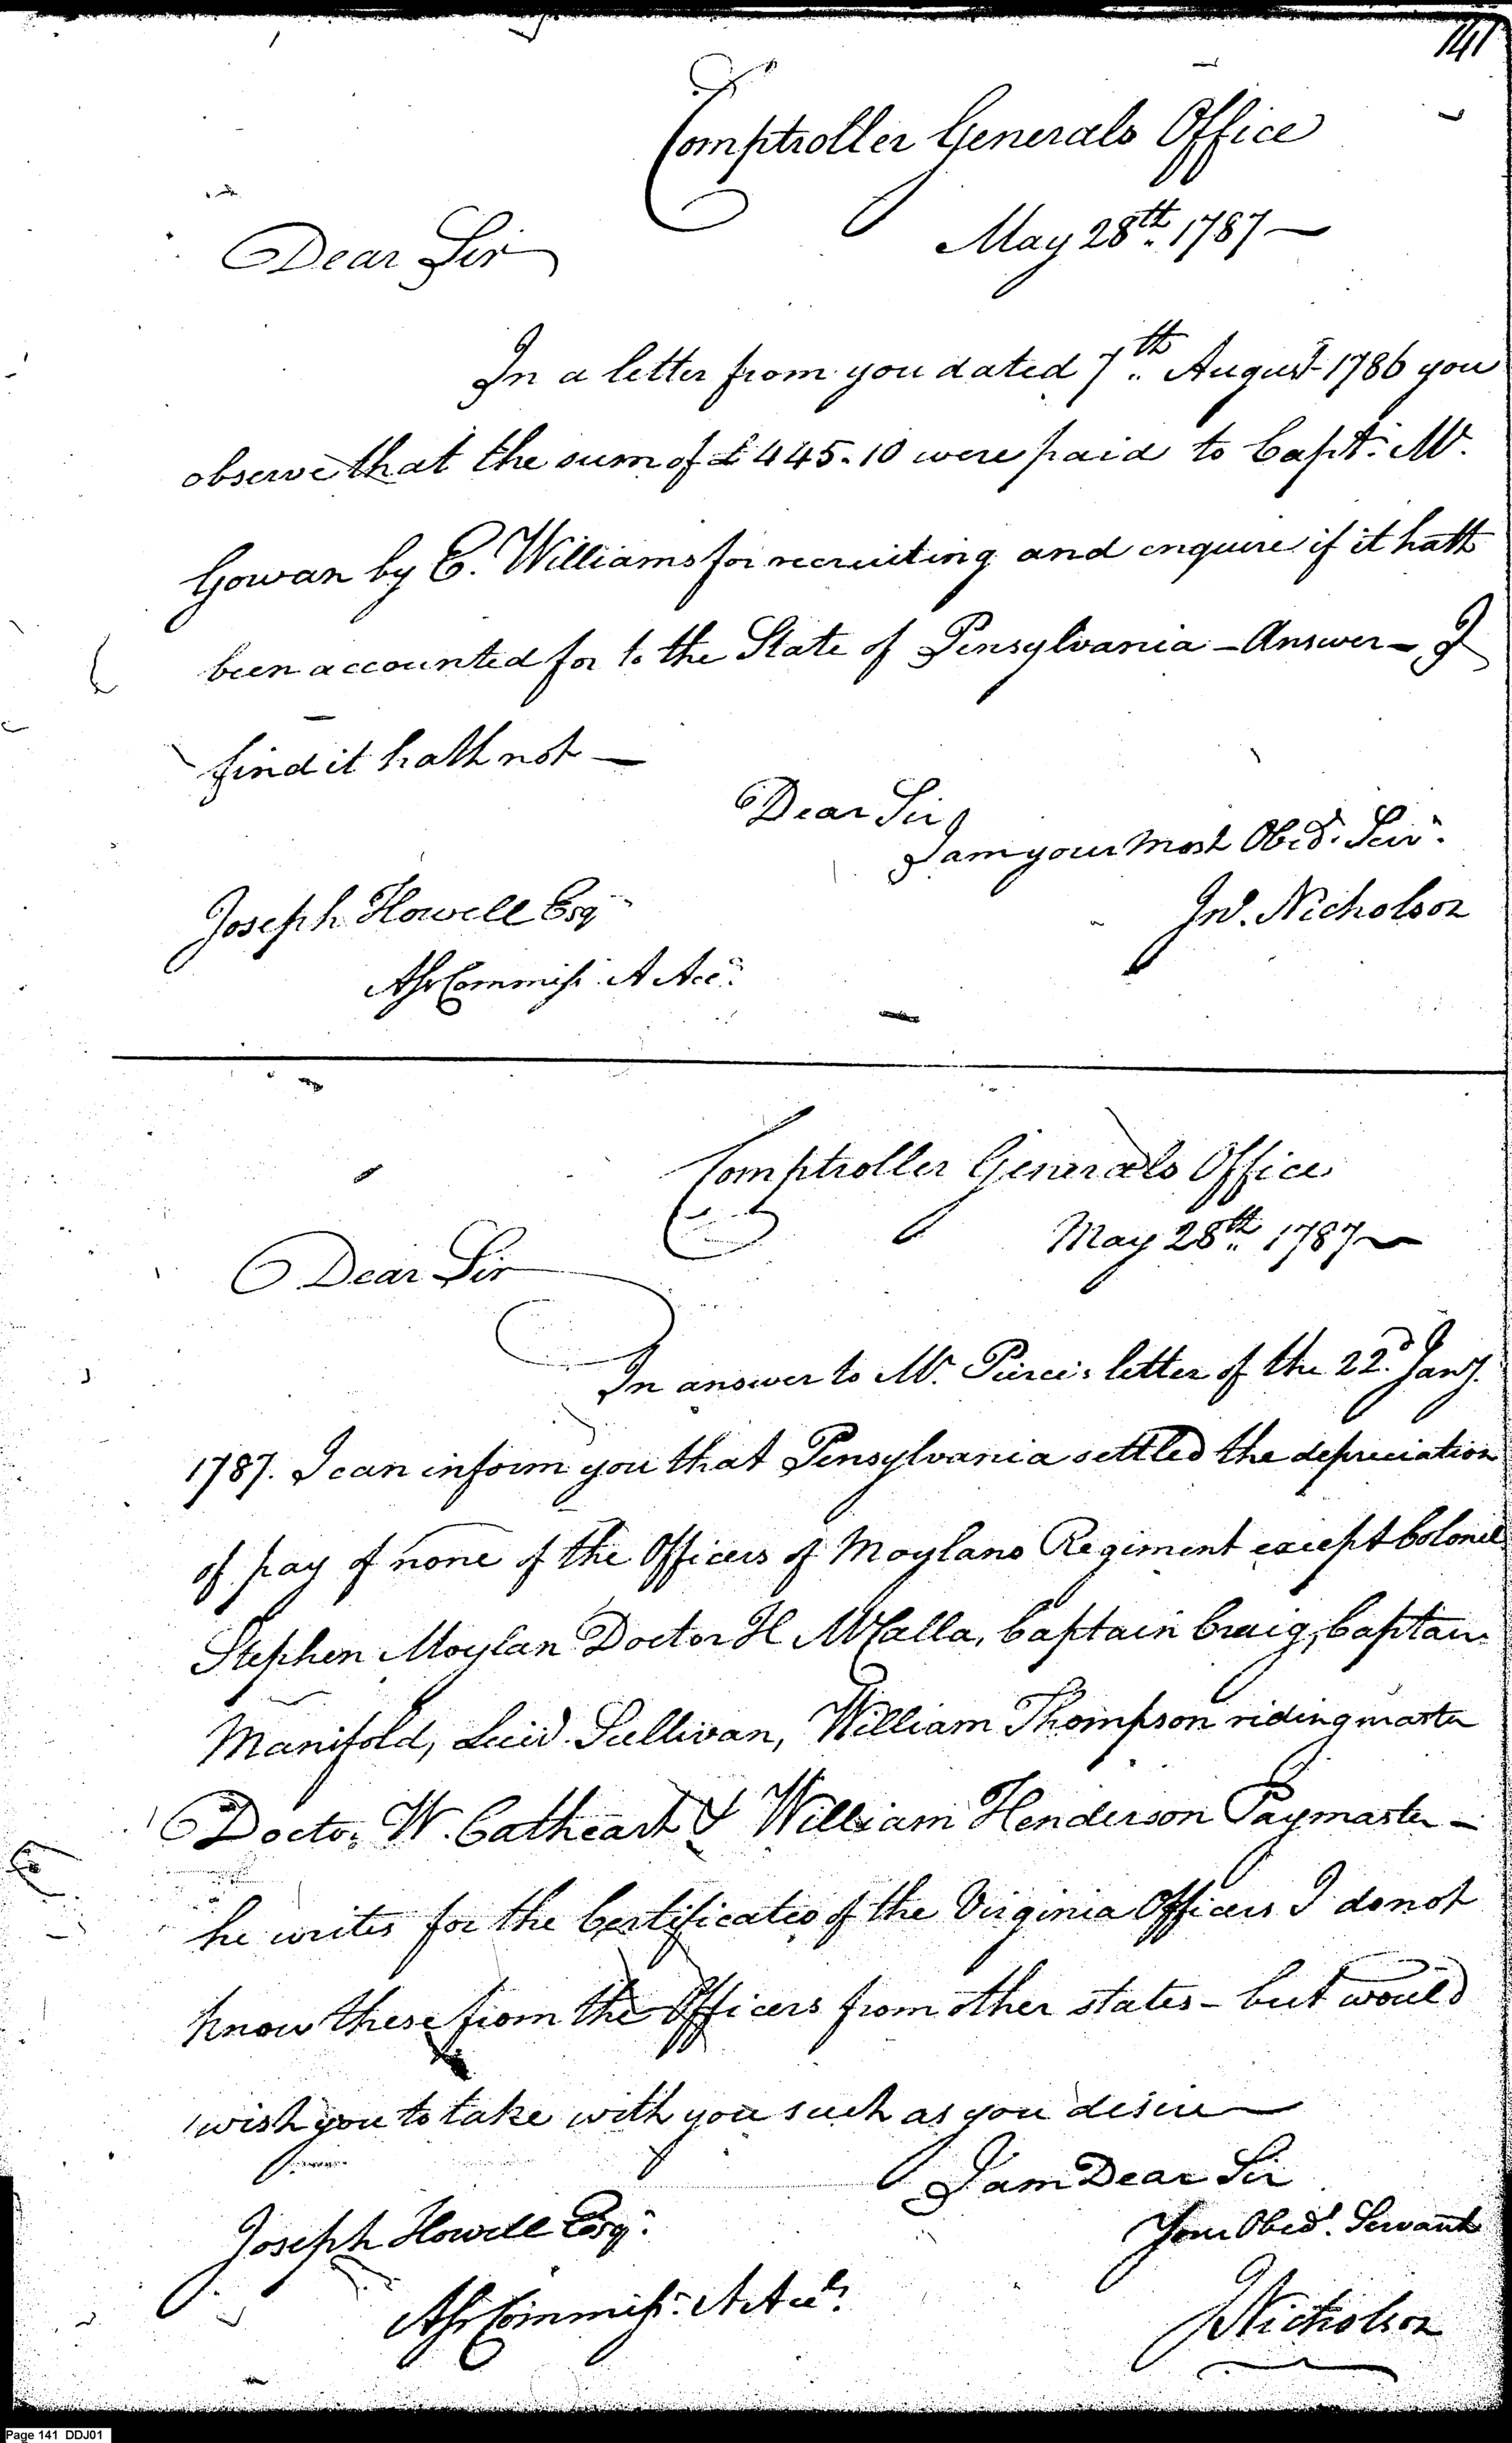 141
Comptroller Generals Office
May 28th. 1787—
Dear Sir
In a letter from you dated 7th. August 1786 you
observe that the sum of £445.10 were paid to Capt. Mc.
Gowan by E. Williams for recruiting and enquire if it hath
been accounted for to the State of Pensylvania - Answer - I
find it hath not —
Dear Sir
I am your most Obed. Serv.
Jno. Nicholson
Joseph Howell Esq
Asr Commiss. A Acc.
Comptroller Generals Office
May 28th. 1787
Dear Sir
In answer to Mr. Pierce's letter of the 22d. Jany.
1787. I can inform you that Pensylvania settled the depreciation
of pay of none of the Officers of Moylans Regiment except Colonel
Stephen Moylan Doctor H McCalla, Captain Craig, Captain
Manifold, Lieut. Sullivan, William Thompson riding master
Doctor W. Cathcart & William Henderson Paymaster -
he writes for the Certificates of the Virginia Officers I do not
know these from the Officers from other states - but would
wish you to take with you such as you desire
I am Dear Sir
Your Obed. Servant
JNicholson
Joseph Howell Esqr.
Asr Commiss. A Accts.
Page 141 DDJ01